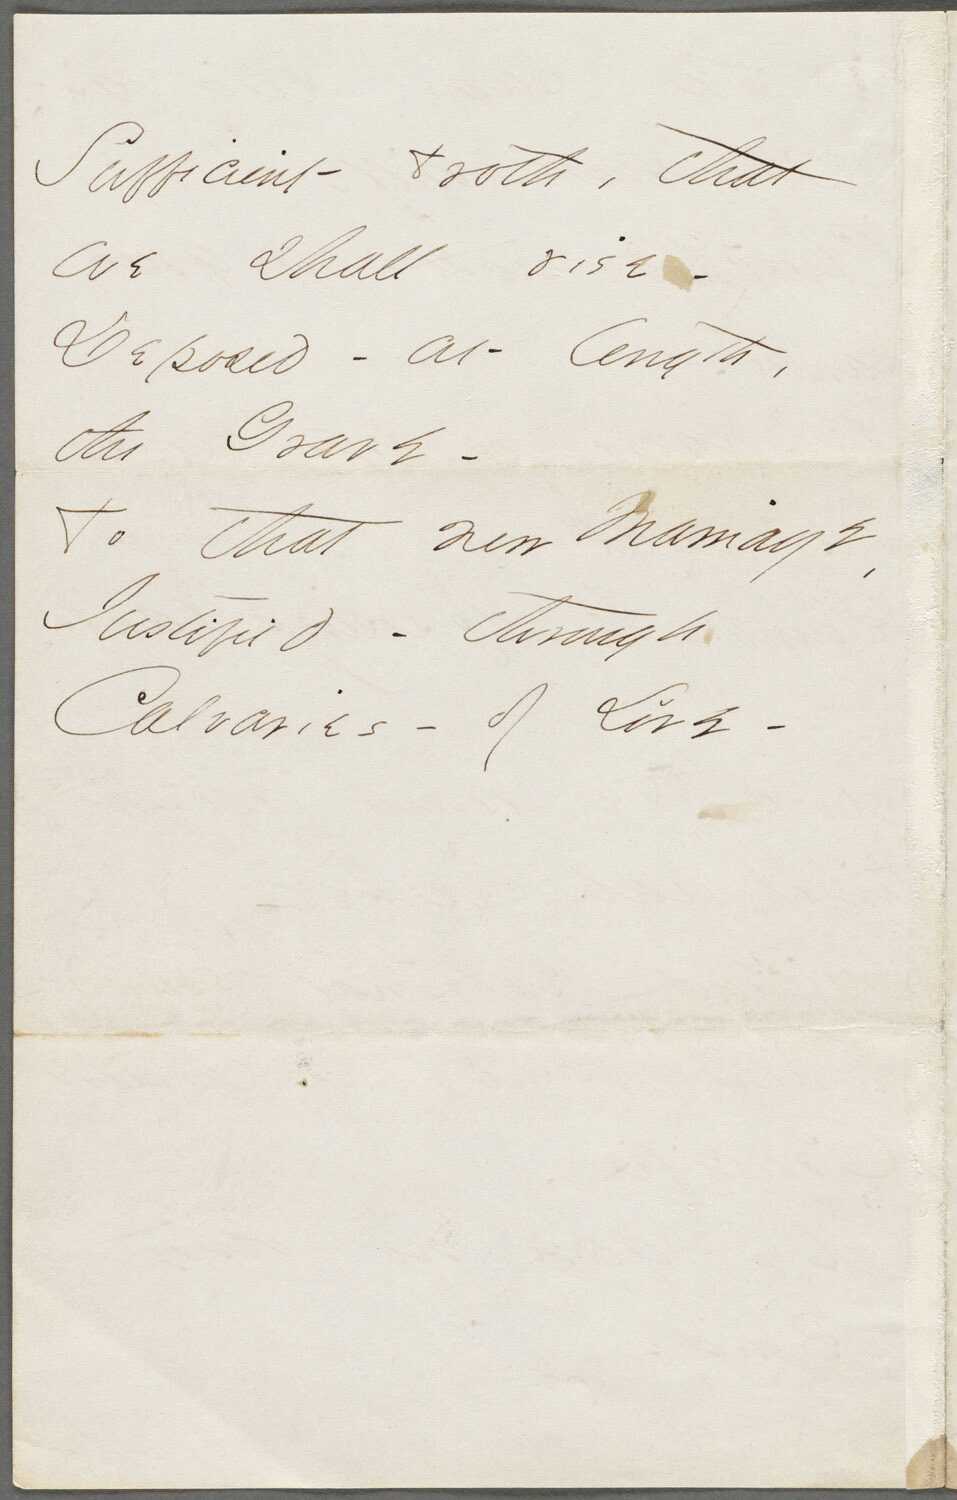 Sufficient troth, that
we shall rise -
Deposed - at length,
the Grave -
To that new Marriage,
Justified - through
Calvaries - of Love -